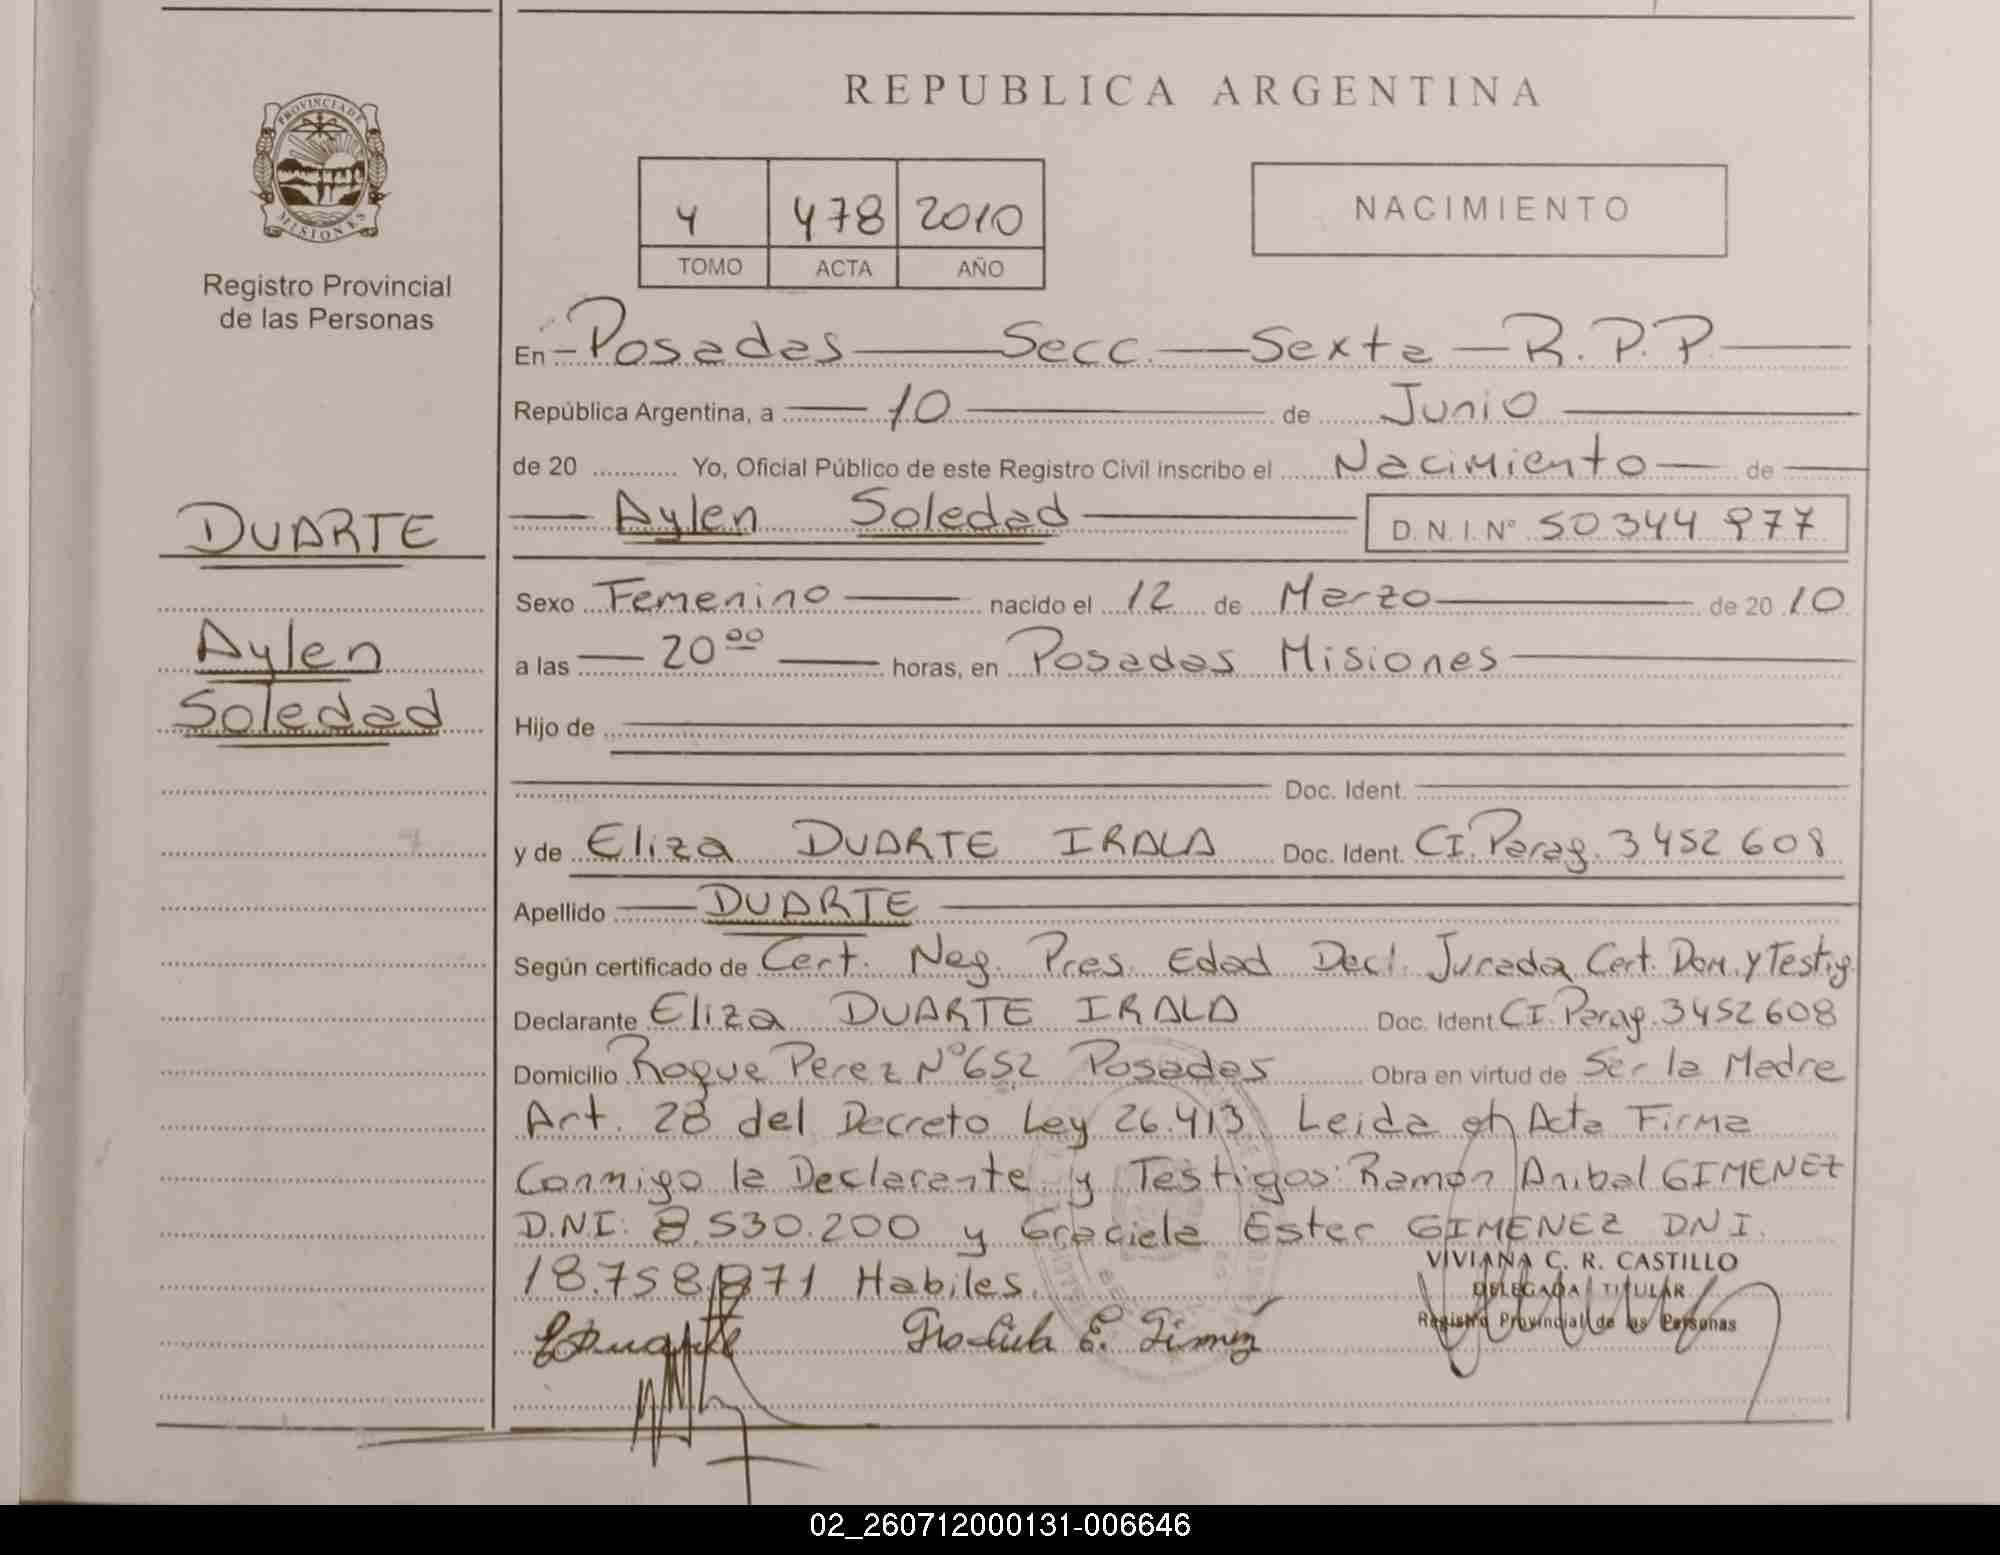 REPUBLICA ARGENTINA
PROVINCIA DE MISIONES
Registro Provincial
de las Personas
4 478 2010
TOMO ACTA AÑO
NACIMIENTO
En Posadas Secc. Sexta R.P.P.
República Argentina, a 10 de Junio
de 20 Yo, Oficial Público de este Registro Civil inscribo el Nacimiento de
DUARTE
Aylen
Soledad
Aylen Soledad D.N.I. N° 50344977
Sexo Femenino nacido el 12 de Marzo de 20 10
a las 20 00 horas, en Posadas Misiones
Hijo de
Doc. Ident.
y de Eliza DUARTE IRALA Doc. Ident. CI. Parag. 3452608
Apellido DUARTE
Según certificado de Cert. Neg. Pres. Edad Decl. Jurada Cert. Dom. y Testig
Declarante Eliza DUARTE IRALA Doc. Ident CI. Parag. 3452608
Domicilio Roque Perez N° 652 Posadas Obra en virtud de Ser la Madre
Art. 28 del Decreto Ley 26.413 Leida el Acta Firma
Conmigo la Declarante y Testigos: Ramon Anibal GIMENEZ
D.N.I: 8.530.200 y Graciela Ester GIMENEZ DNI.
18.758.871 Habiles.
VIVIANA C. R. CASTILLO
DELEGADA TITULAR
Registro Provincial de las Personas
EDuarte
Graciela E. Gimenez
02_260712000131-006646